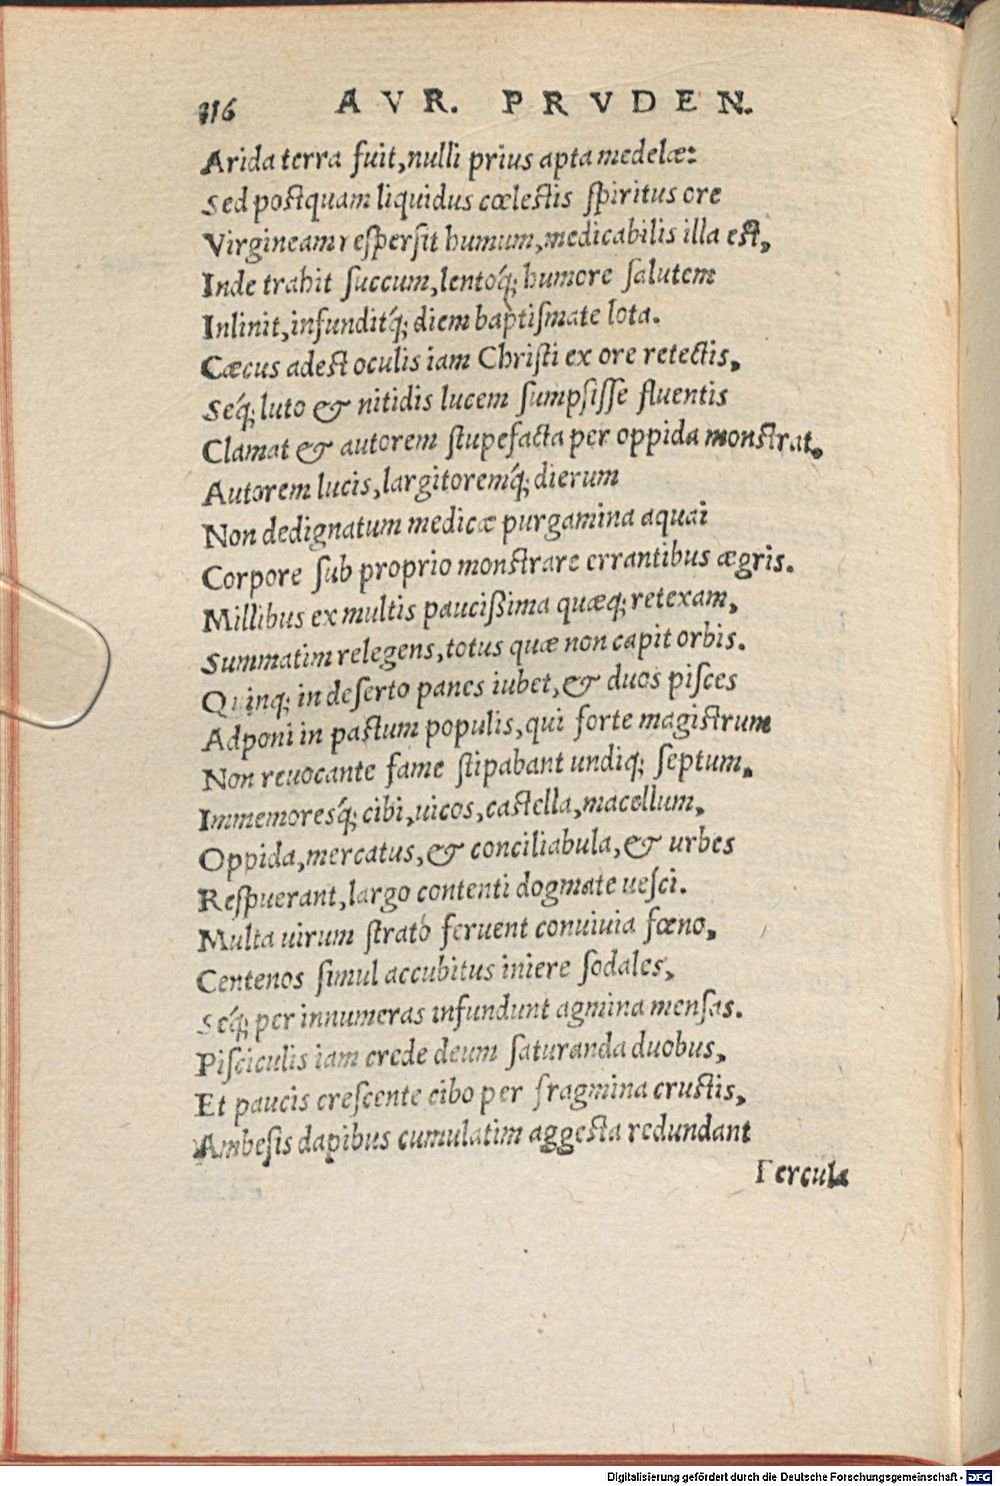 316 AVR. PRVDEN.
Arida terra fuit, nulli prius apta medelæ:
Sed postquam liquidus cœlestis spiritus ore
Virgineam respersit humum, medicabilis illa est,
Inde trahit succum, lentoq́; humore salutem
Inlinit, infunditq́; diem baptismate lota.
Cæcus adest oculis iam Christi ex ore retectis,
Seq́; luto & nitidis lucem sumpsisse fluentis
Clamat & autorem stupefacta per oppida monstrat.
Autorem lucis, largitoremq́; dierum
Non dedignatum medicæ purgamina aquai
Corpore sub proprio monstrare errantibus ægris.
Millibus ex multis paucißima quæq; retexam,
Summatim relegens, totus quæ non capit orbis.
Quinq; in deserto panes iubet, & duos pisces
Adponi in pastum populis, qui forte magistrum
Non reuocante fame stipabant undiq; septum,
Immemoresq́; cibi, uicos, castella, macellum,
Oppida, mercatus, & conciliabula, & urbes
Respuerant, largo contenti dogmate uesci.
Multa uirum strato feruent conuiuia fœno,
Centenos simul accubitus iniere sodales,
Seq́; per innumeras infundunt agmina mensas.
Pisciculis iam crede deum saturanda duobus,
Et paucis crescente cibo per fragmina crustis,
Ambesis dapibus cumulatim aggesta redundant
Fercula
Digitalisierung gefördert durch die Deutsche Forschungsgemeinschaft - DFG